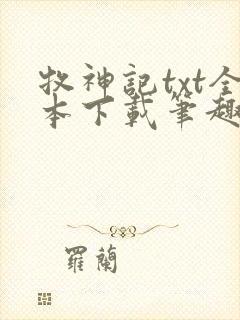 牧神記txt全
本下載筆趣
羅蘭